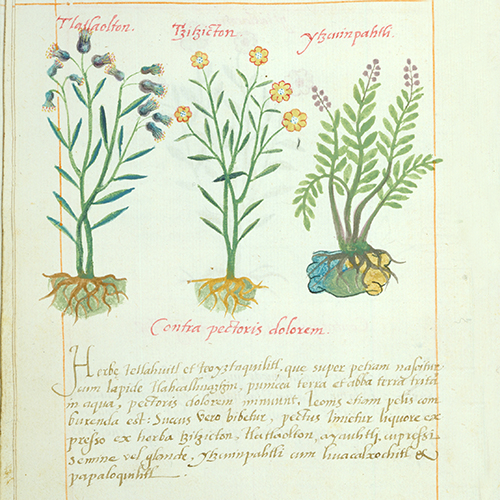 Tlallaolton. Tzitzicton. Ytzcuinpahtli.
Contra pectoris dolorem.
Herbę et que super petram nascitur
cum lapide punicea terra et alba terra trita
in aqua, pectoris dolorem minuunt. leonis etiam pelis com
burenda est: Succus vero bibetur, pectus inicitur liquore ex
presso ex herba tzitzicton, tlatlaolton, ayauhtli, cupressi
semine vel glande, Ytzcuinpahtli cum et
papaloquilitl